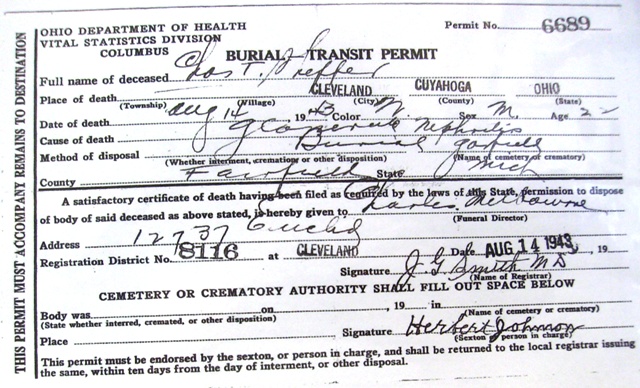 THIS PERMIT MUST ACCOMPANY REMAINS TO DESTINATION
OHIO DEPARTMENT OF HEALTH
VITAL STATISTICS DIVISION
COLUMBUS
Permit No. 6689
BURIAL TRANSIT PERMIT
Full name of deceased Chas T.
Place of death CLEVELAND CUYAHOGA OHIO
(Township) (Village) (City) (County) (State)
Date of death Aug 14 1943 Color Sex M. Age
Cause of death Nephritis
Method of disposal Burial
(Whether interment, cremation or other disposition) (Name of cemetery or crematory)
County Fairfield State Mich
A satisfactory certificate of death having been filed as required by the laws of this State, permission to dispose
of body of said deceased as above stated, is hereby given to Charles
(Funeral Director)
Address 12737 Euclid
Registration District No. 8116 at CLEVELAND Date AUG 14 1943, 19
Signature J G Smith M D
(Name of Registrar)
CEMETERY OR CREMATORY AUTHORITY SHALL FILL OUT SPACE BELOW
Body was on , 19 in
(State whether interred, cremated, or other disposition) (Name of cemetery or crematory)
Place Signature Herbert Johnson
(Sexton or person in charge)
This permit must be endorsed by the sexton, or person in charge, and shall be returned to the local registrar issuing
the same, within ten days from the day of interment, or other disposal.